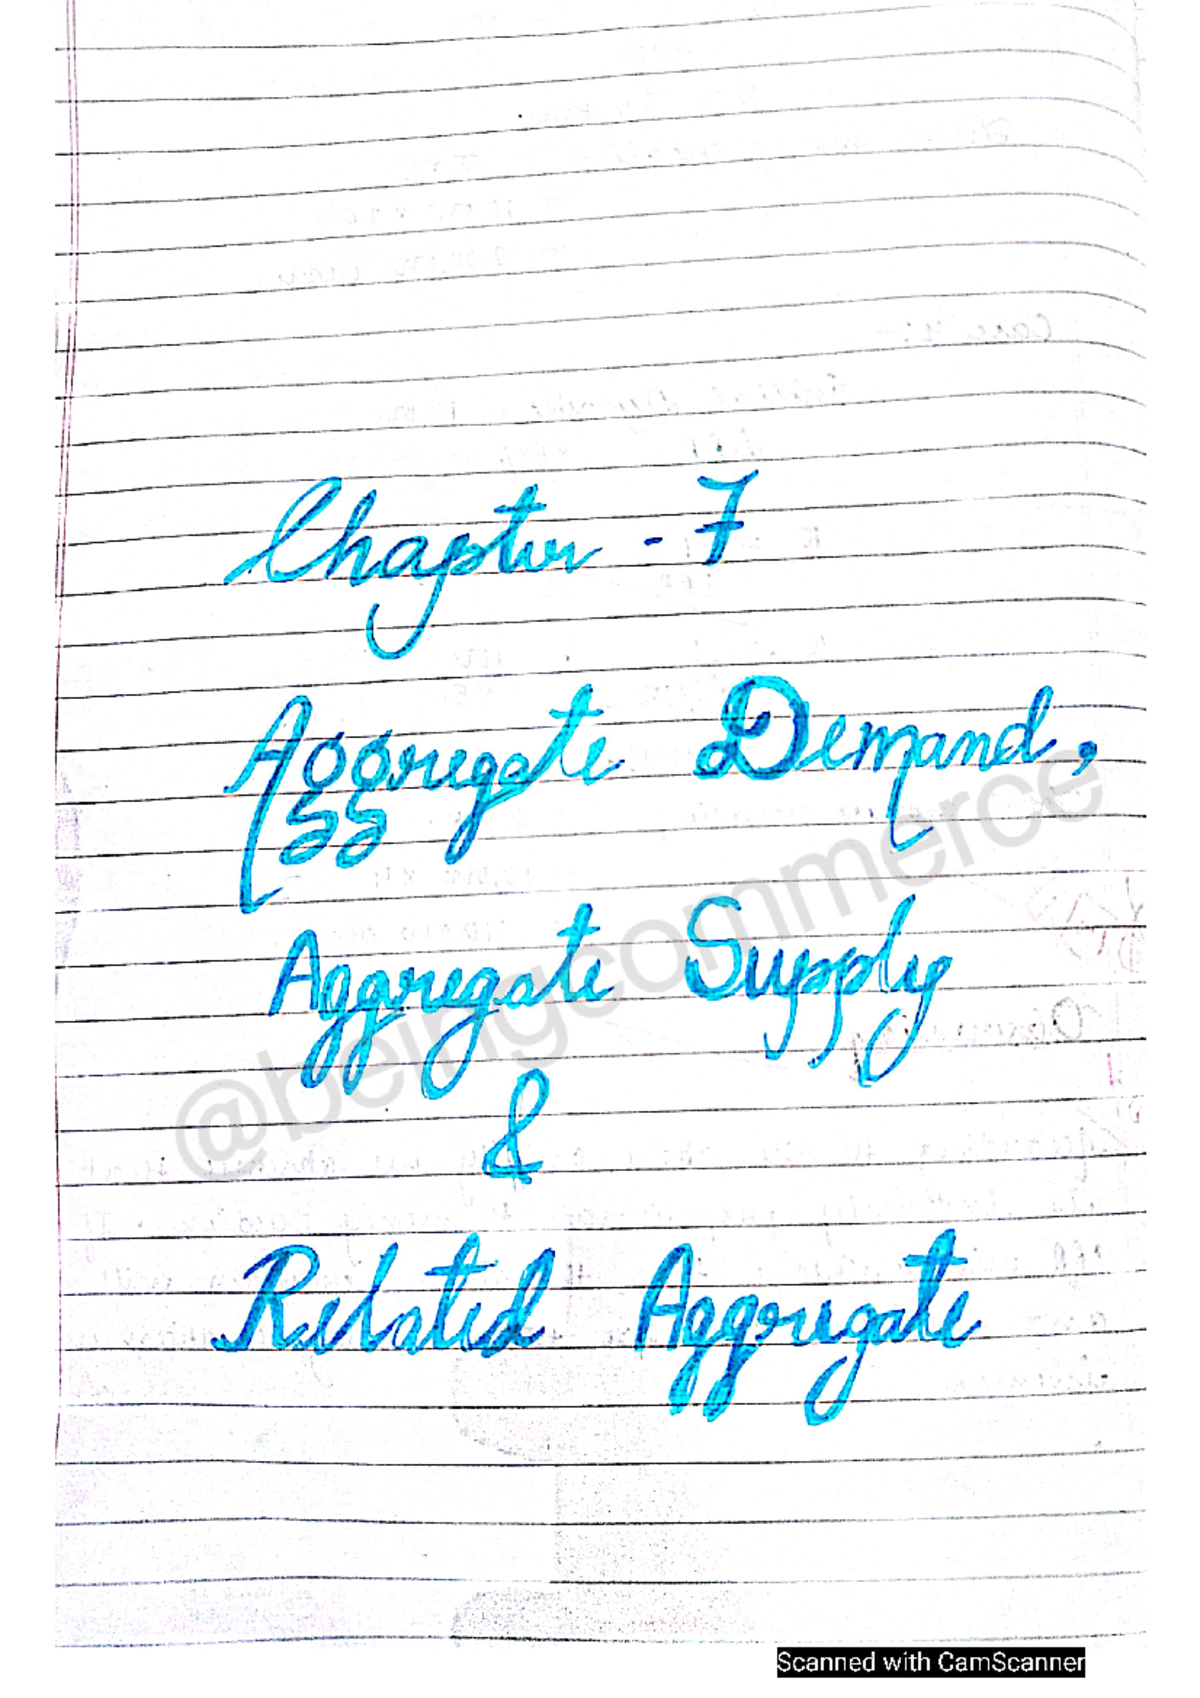 Chapter - 7
Aggregate Demand,
Aggregate Supply
&
Related Aggregate
@beingcommerce
Scanned with CamScanner